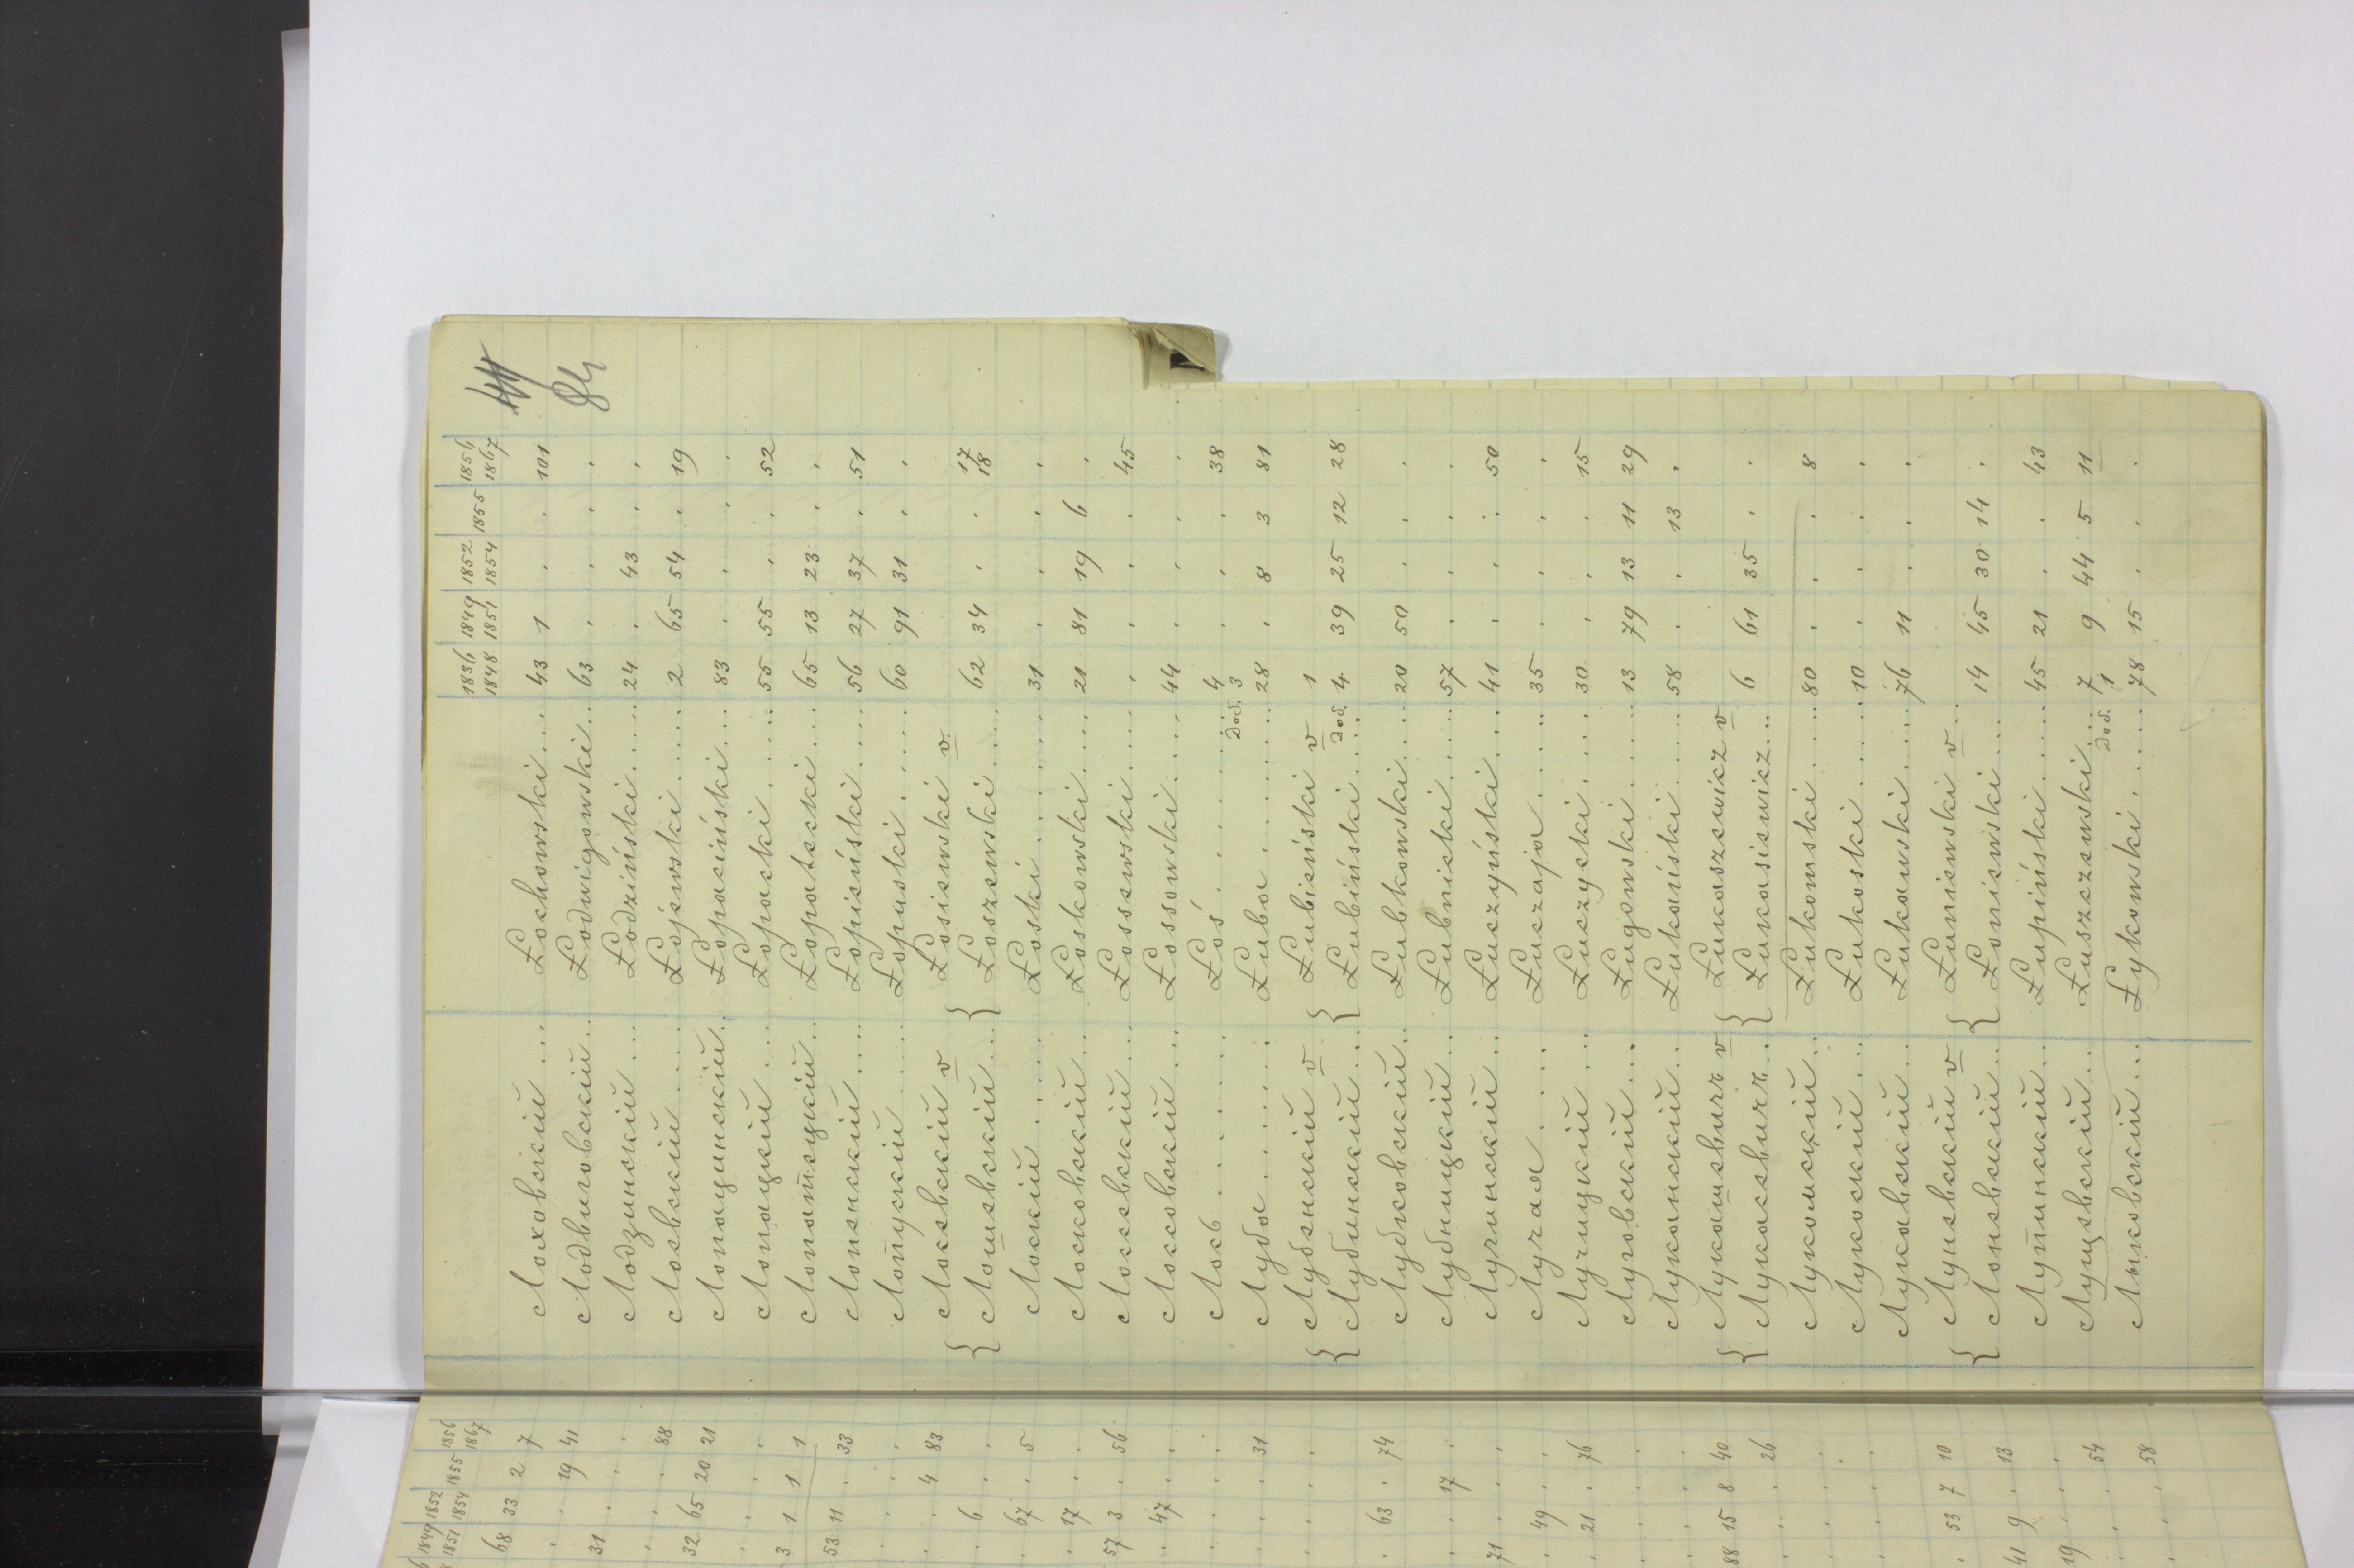 84
1836 1849 1852 1855 1856
1848 1851 1854 1867
Лоховскій ... Łochowski ... 43 1 . . 101
Лодвиговскій .. Łodwigowski .. 63 . . . .
Лодзинскій ... Łodziński .... 24 . 43 . .
Лоевскій .... Łojewski .... 2 65 54 . 19
Лопацинскій .. Łopaciński ... 83 . . . .
Лопацкій .... Łopacki ..... 55 55 . . 52
Лопатецкій .. Łopatecki ... 65 13 23 . .
Лопенскій .... Łopieński .... 56 27 37 . 51
Лопускій .... Łopuski ..... 60 91 31 . .
{ Лосевскій v Łosiewski v
{ Лошевскій ... Łoszewski ... 62 34 . . 17 18
Лоскій ...... Łoski ....... 31 . . . .
Лосковскій .. Łoskowski ... 21 81 19 6 .
Лоссевскій ... Łossewski .... . . . . 45
Лоссовскій ... Łossowski .... 44 . . . .
Лось ...... Łoś ...... 4 . . . 38
дод. 3
Луба ...... Łuba ...... 28 . 8 3 81
{ Лубенскій v Łubieński v 1
{ Лубинскій ... Łubiński .... дод. 4 39 25 12 28
Лубковскій .. Łubkowski ... 20 50 . . .
Лубницкій ... Łubnicki .... 57 . . . .
Лучинскій ... Łuczyński ... 41 . . . 50
Лучая ..... Łuczaja ..... 35 . . . .
Лучицкій ... Łuczycki .... 30 . . . 15
Луговскій ... Ługowski .... 13 79 13 11 29
Луканскій .. Łukański .... 58 . . 13 .
{ Лукашевичъ v Łukaszewicz v
{ Лукасевичъ .. Łukasiewicz ... 6 61 35 . .
Лукомскій .. Łukomski .... 80 . . . 8
Лукоскій ... Łukoski ..... 10 . . . .
Лукавскій .. Łukawski .... 76 11 . . .
{ Луневскій v Łuniewski v
{ Лоневскій ... Łoniewski ... 14 45 30 14 .
Лупинскій .. Łupiński .... 45 21 . . 43
Лущевскій .. Łuszczewski ... 7 9 44 5 11
дод. 1
Лыковскій ... Łykowski .... 78 15 . . .
1849 1852 1855 1856
1851 1854 1867
68 33 2 7
. . 19 41
31 . . .
. . . 88
32 65 20 21
. . . .
3 1 1 1
53 11 . 33
. . . .
. . 4 83
. 6 . .
. 67 . 5
. 17 . .
57 3 . 56
. 47 . .
. . . .
. . . 31
. . . .
. 63 . 74
. . 17 .
71 . . .
. 49 . .
. 21 . 76
. . . .
. . . .
88 15 8 40
. . . 26
. . . .
. . . .
. 53 7 10
41 9 . 13
19 . . .
. . . 54
. . . 58